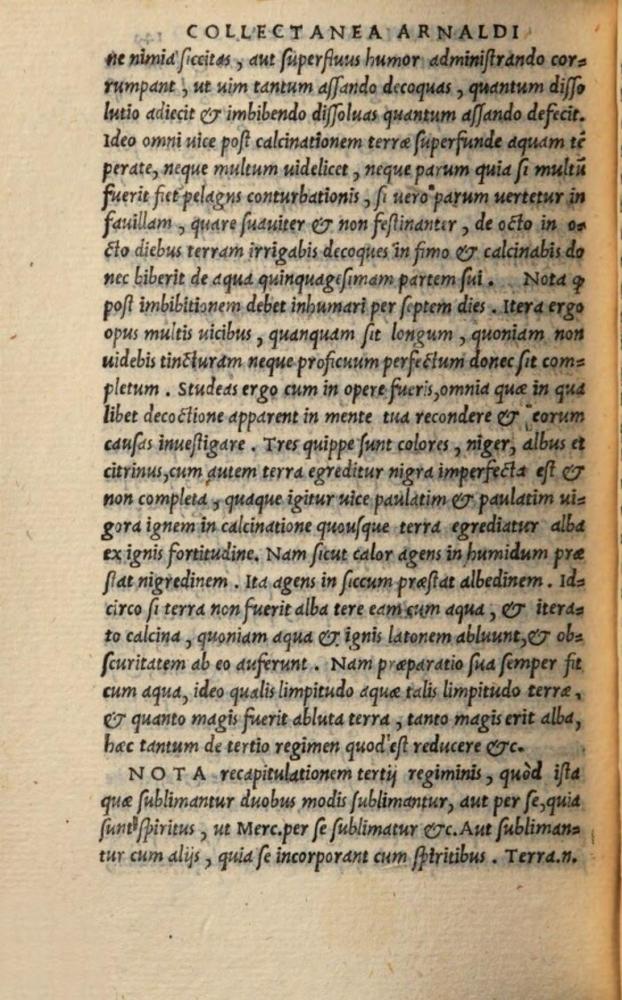 COLLECTANEA ARNALDI
ne nimia ſiccitas, aut ſuperfluus humor adminiſtrando cor=
rumpant, ut uim tantum aſſando decoquas, quantum diſſo
lutio adiecit & imbibendo diſſoluas quantum aſſando defecit.
Ideo omni uice poſt calcinationem terræ ſuperfunde aquam tẽ
perate, neque multum uidelicet, neque parum quia ſi multũ
fuerit fiet pelagus conturbationis, ſi uero parum uertetur in
fauillam, quare ſuauiter & non feſtinanter, de octo in o=
cto diebus terram irrigabis decoques in fimo & calcinabis do
nec biberit de aqua quinquageſimam partem ſui. Nota ꝙ
poſt imbibitionem debet inhumari per ſeptem dies. Itera ergo
opus multis uicibus, quanquam ſit longum, quoniam non
uidebis tincturam neque proficuum perfectum donec ſit com=
pletum. Studeas ergo cum in opere fueris, omnia quæ in qua
libet decoctione apparent in mente tua recondere & eorum
cauſas inueſtigare. Tres quippe ſunt colores, niger, albus et
citrinus, cum autem terra egreditur nigra imperfecta eſt &
non completa, quaque igitur uice paulatim & paulatim ui=
gora ignem in calcinatione quouſque terra egrediatur alba
ex ignis fortitudine. Nam ſicut calor agens in humidum præ
ſtat nigredinem. Ita agens in ſiccum præſtat albedinem. Id=
circo ſi terra non fuerit alba tere eam cum aqua, & itera=
to calcina, quoniam aqua & ignis latonem abluunt, & ob=
ſcuritatem ab eo auferunt. Nam præparatio ſua ſemper fit
cum aqua, ideo qualis limpitudo aquæ talis limpitudo terræ,
& quanto magis fuerit abluta terra, tanto magis erit alba,
hæc tantum de tertio regimen quod eſt reducere &c.
NOTA recapitulationem tertij regiminis, quòd iſta
quæ ſublimantur duobus modis ſublimantur, aut per ſe, quia
ſunt ſpiritus, ut Merc. per ſe ſublimatur &c. Aut ſubliman=
tur cum alijs, quia ſe incorporant cum ſpiritibus. Terra.n.